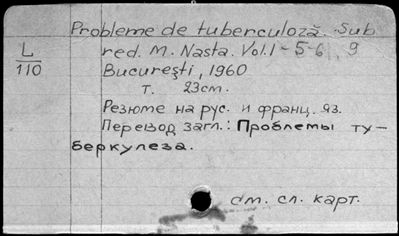 Probleme de tuberculoză. Sub
red. M. Nasta. Vol. I - 5-6, 9
L
110
Bucureşti, 1960
т. 23см.
Резюме на рус. и франц. яз.
Перевод загл.: Проблемы ту-
беркулеза.
дм. сл. карт.